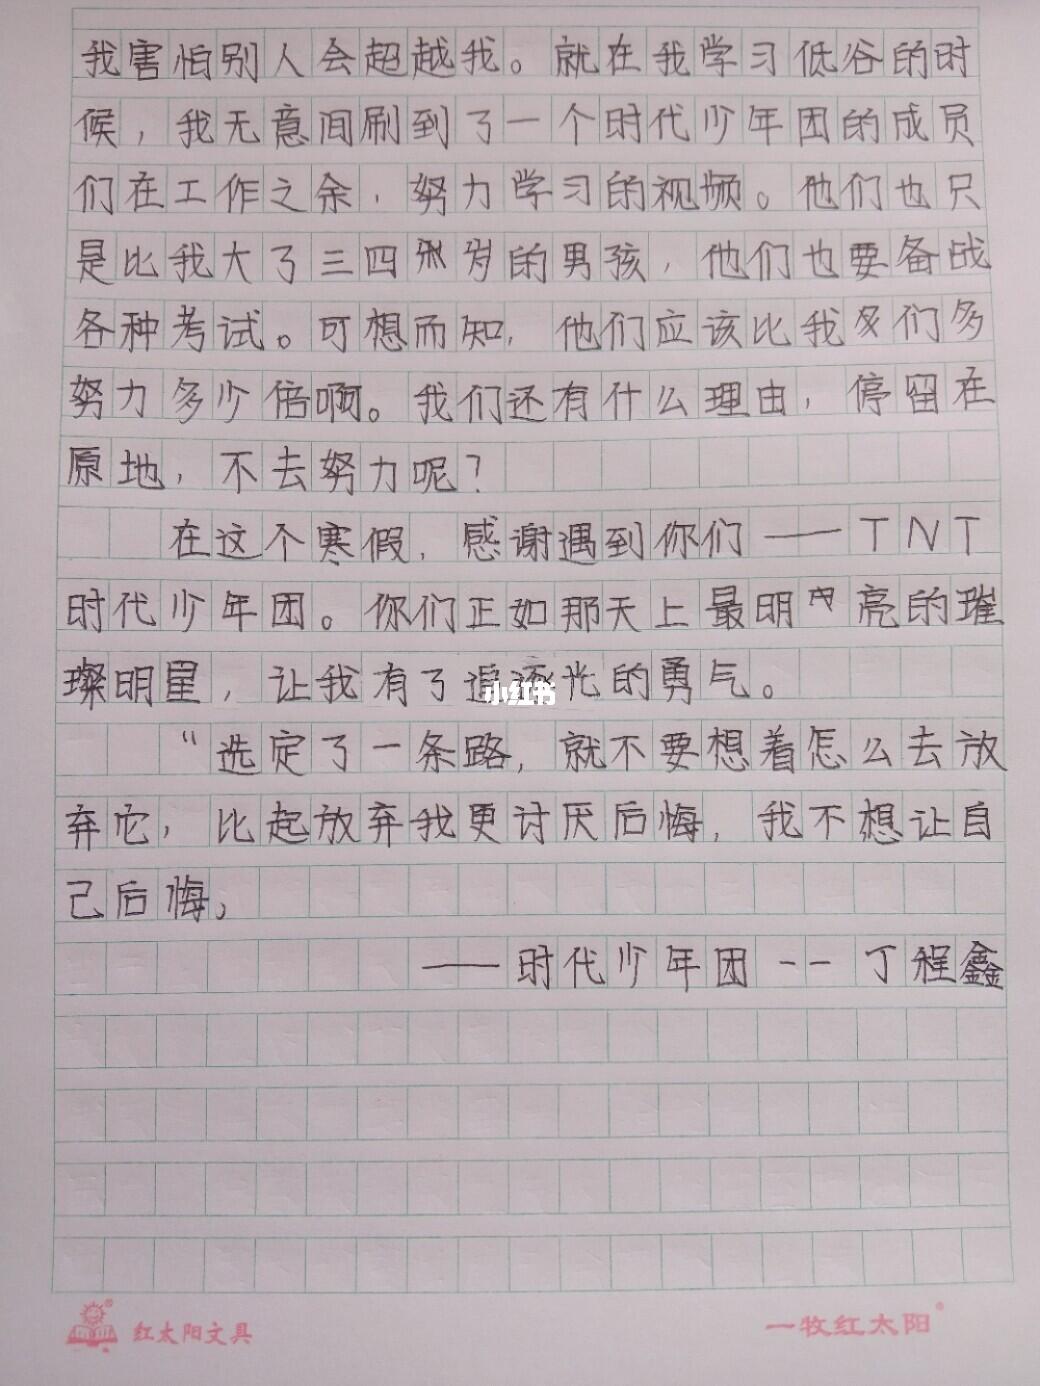 我害怕别人会超越我。就在我学习低谷的时
候，我无意间刷到了一个时代少年团的成员
们在工作之余，努力学习的视频。他们也只
是比我大了三四岁的男孩，他们也要备战
各种考试。可想而知，他们应该比我们多
努力多少倍啊。我们还有什么理由，停留在
原地，不去努力呢？
在这个寒假，感谢遇到你们——TNT
时代少年团。你们正如那天上最明亮的璀
璨明星，让我有了追逐光的勇气。
小红书
“选定了一条路，就不要想着怎么去放
弃它，比起放弃我更讨厌后悔，我不想让自
己后悔，
——时代少年团--丁程鑫
红太阳文具
一牧红太阳